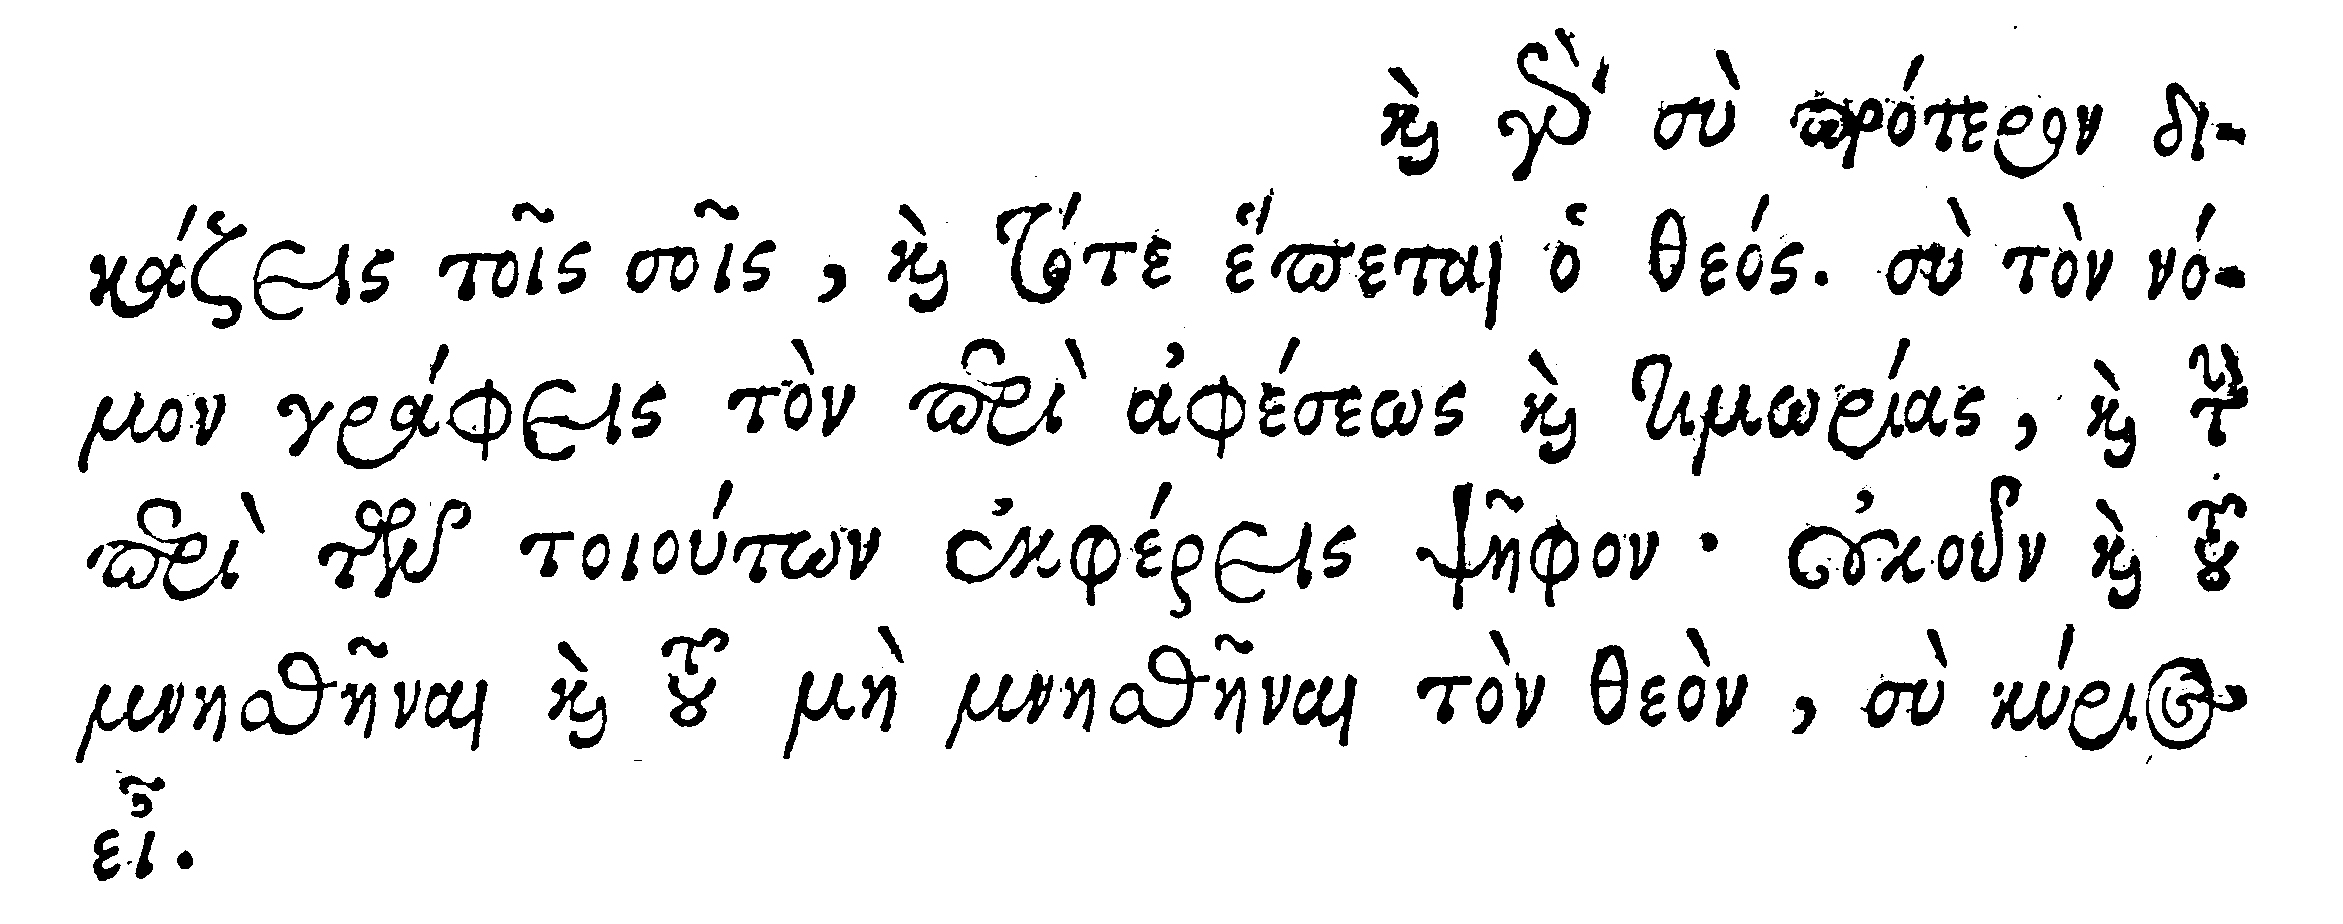 καὶ γὰρ σὺ πρότερον δι-
κάζεις τοῖς σοῖς, καὶ τότε ἕπεται ὁ θεός. σὺ τὸν νό-
μον γράφεις τὸν περὶ ἀφέσεως καὶ τιμωρίας, καὶ τὴν
περὶ τῶν τοιούτων ἐκφέρεις ψῆφον· οὐκοῦν καὶ τοῦ
μνησθῆναι καὶ τοῦ μὴ μνησθῆναι τὸν θεὸν, σὺ κύριος
εἶ.